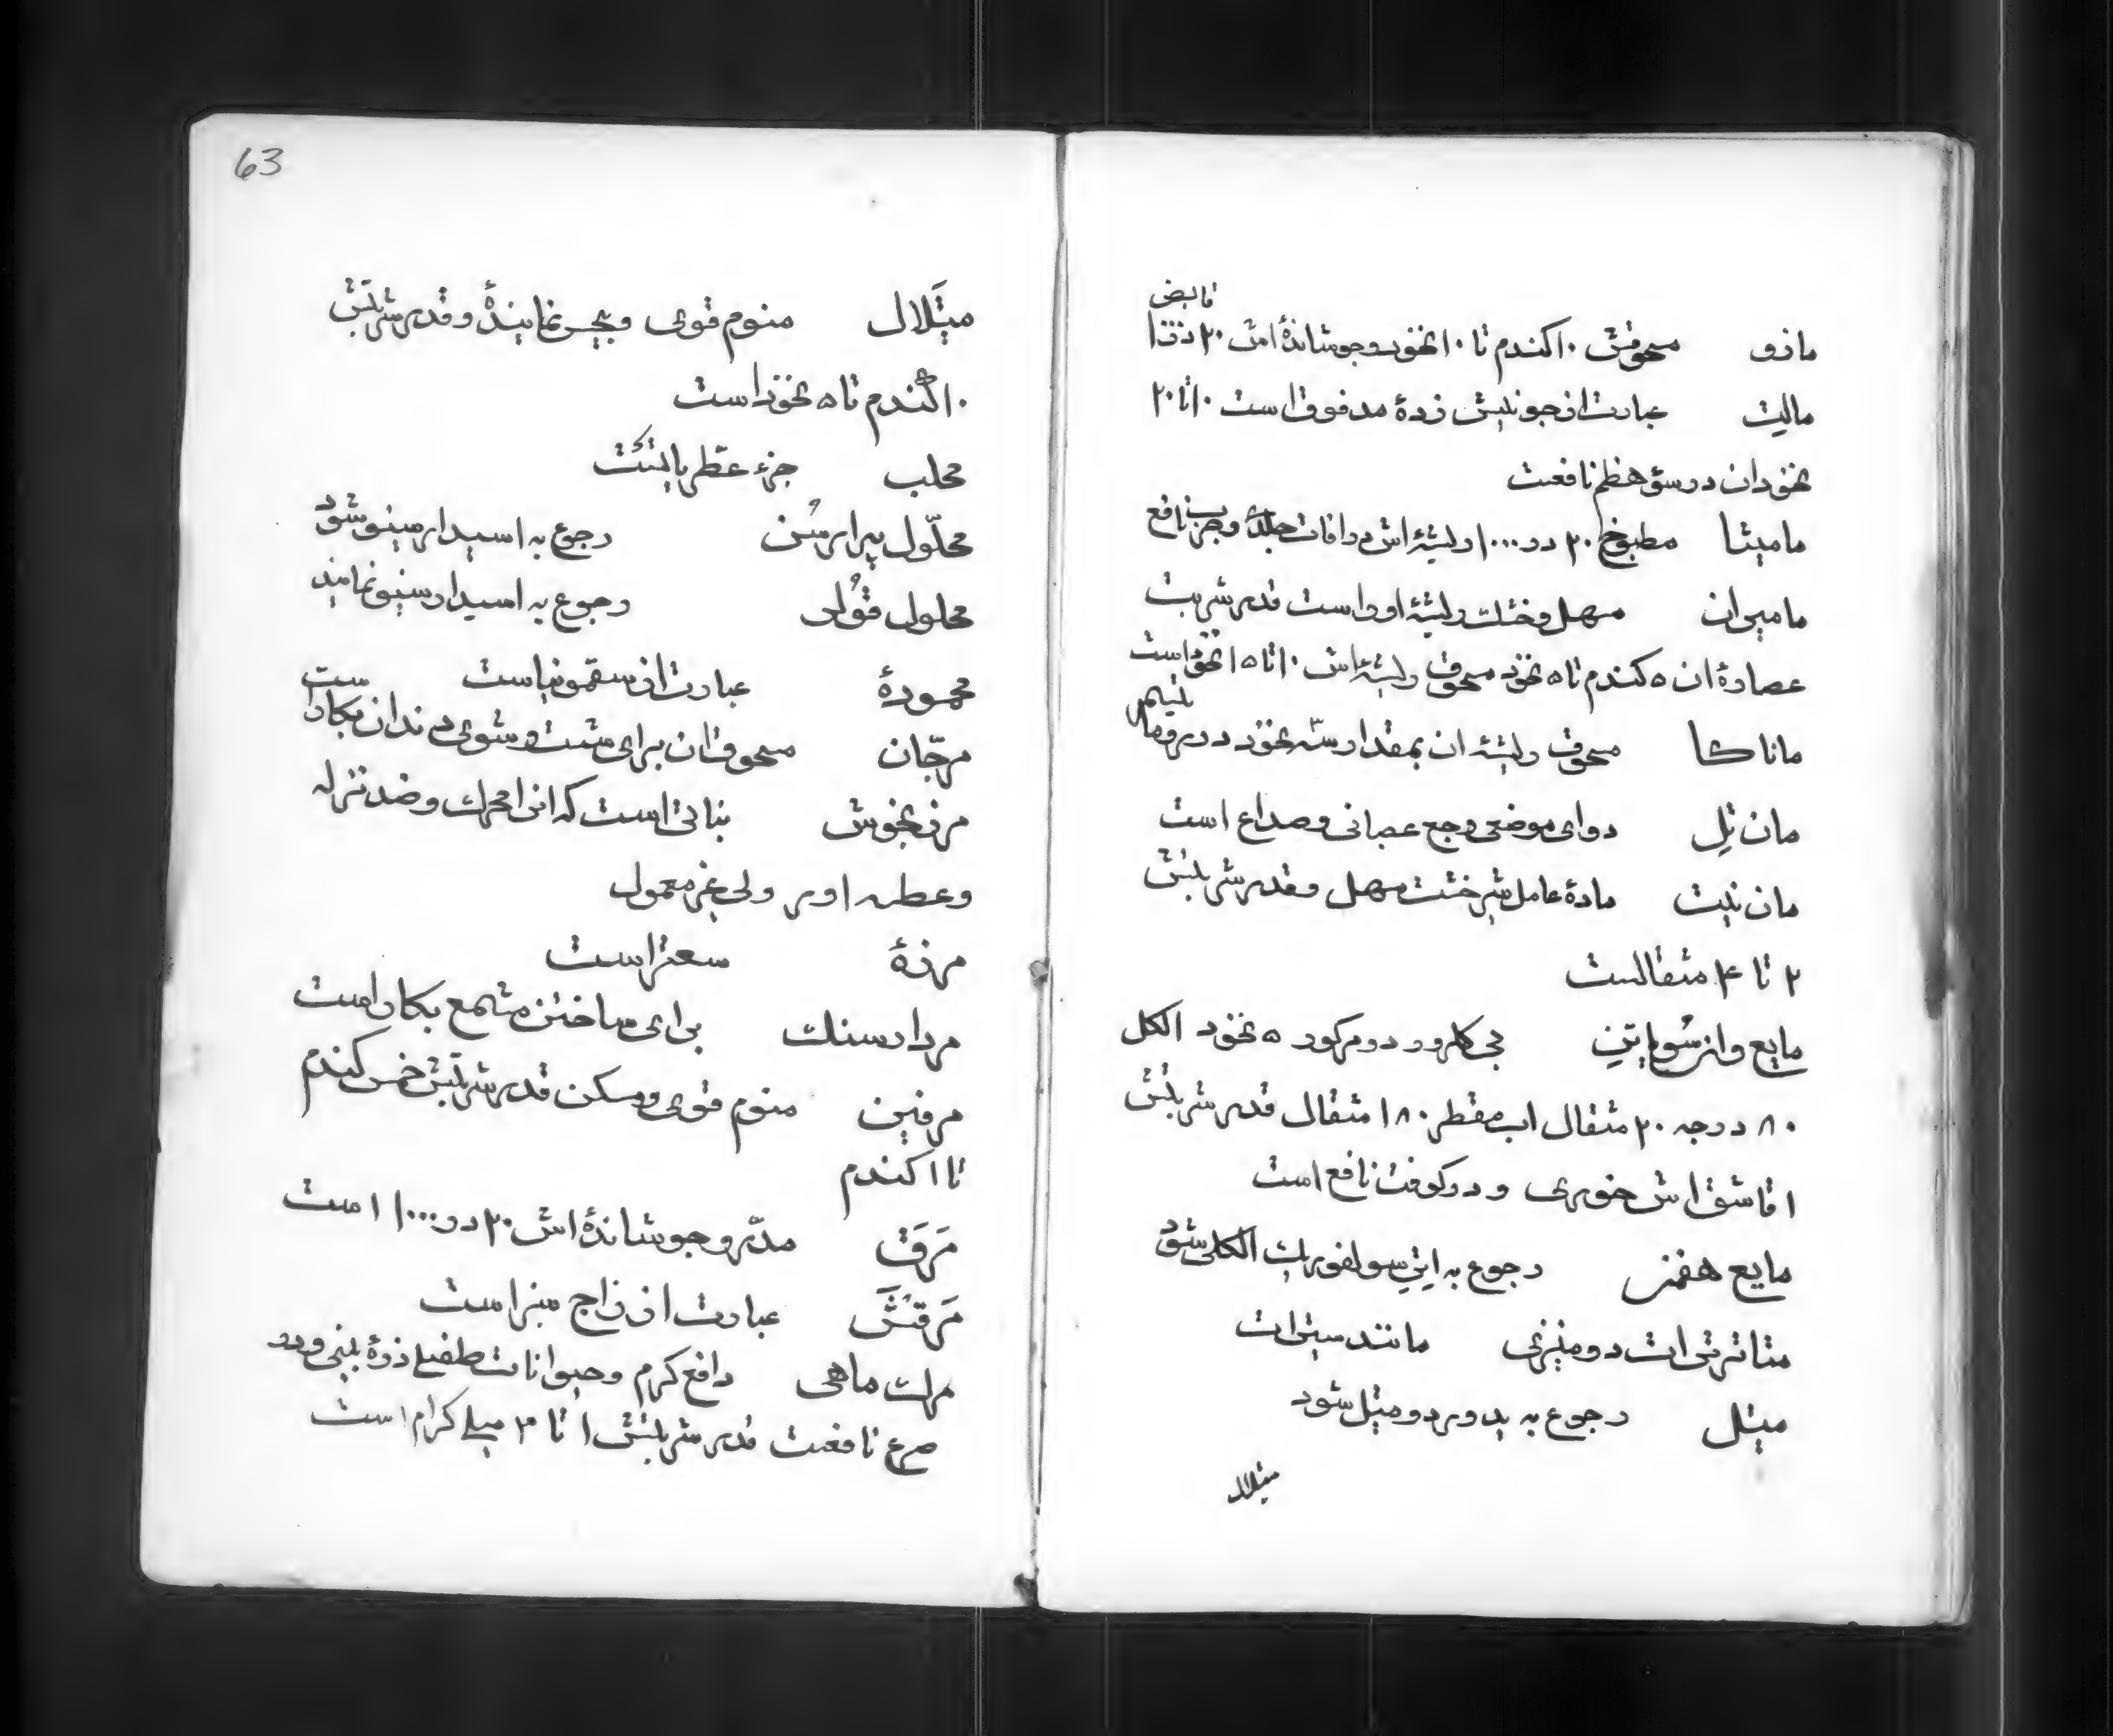 قابض
مازو مسحوقش ۱۰ گندم تا ۱۰ نخود و جوشاندۀ اش ۲۰ در
مالیت عبارت از جو نیش زدۀ مدقوق است ۱۰ تا ۲۰
نخود ان در سوء هظم نافعست
مامیثا مطبوخ ۲۰ در ۱۰۰۰ ریشۀ اش در افات جلدیه و جرب نافع
مامیران مسهل و خشک ریشۀ او را است قدر شربت
عصارۀ ان ۵ گندم تا ۵ نخود مسحوق ریشۀ اش ۱۰ تا ۱۵ نخود است
ماناکا مسحوق ریشۀ ان بمقدار سه نخود در روماتیسم
مان تل دوای موضعی وجع عصبانی و صداع است
مان نیت مادۀ عامل شیرخشت مسهل و قدر شربتش
۲ تا ۴ مثقالست
مایع وانزسویتن بی کلرور دو مرکور ۵ نخود الکل
۸۰ درجه ۲۰ مثقال اب مقطر ۱۸۰ مثقال قدر شربتش
۱ قاشق اش خوری و در کوفت نافع است
مایع هفمن رجوع به اتر سولفوریک الکلی شود
متاترتی ات دومنیزی مانند سیترات
میتل رجوع به یدور دو متیل شود
میتلال
63
میتَلال منوم قوی و بیحس نمایندۀ و قدر شربتش
۱۰ گندم تا ۵ نخود است
محلب جزء عطریاتست
محلّول پیرارسُن رجوع به اسیدارسینو شود
محلول فوُلر رجوع به اسیدارسنیو نمایند
محمودۀ عبارت از سقمونیاست
مرجّان مسحوق ان برای شست و شوی دندان بکار است
مرزنجوش نباتی است که انرا محرک و ضد نزله
و عطسه اور ولی غیر معمول
مرزۀ سعتر است
مرداسنک برای ساختن مشمع بکار است
مرفین منوم قوی و مسکن قدر شربتش خمس گندم
تا ۱ گندم
مَرَق مدّر و جوشاندۀ اش ۲۰ در ۱۰۰۰ است
مَرقَشَ عبارت از زاج سبز است
مرک ماهی دافع کرم و حیوانات طفیلی ذرۀ بینی و در
صرع نافعست قدر شربتش ۱ تا ۳ میلی کرام است